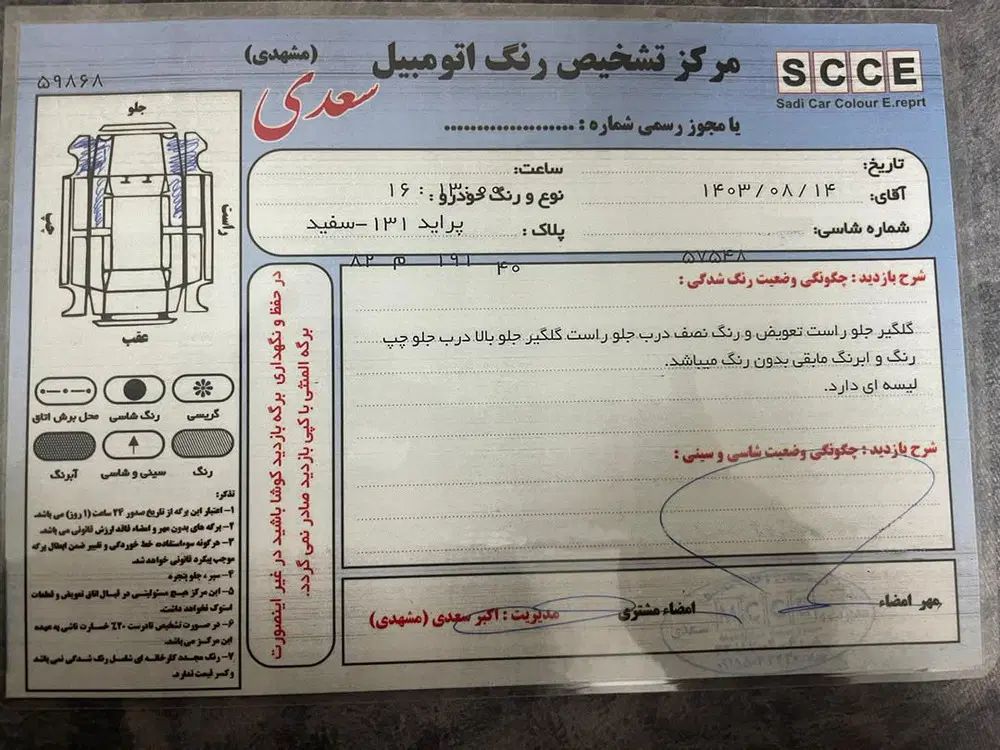 مرکز تشخیص رنگ اتومبیل (مشهدی)
سعدی
SCCE
Sadi Car Colour E.reprt
با مجوز رسمی شماره : ....................
۵۹۸۶۸
تاریخ: ساعت:
آقای: ۱۴۰۳/۰۸/۱۴ نوع و رنگ خودرو : ۱۶ : ۱۳:۰۰
شماره شاسی: پلاک : پراید ۱۳۱-سفید
۵۷۵۴۸ ۴۰ ۱۹۱ م ۸۲
جلو
راست
چپ
عقب
گریسی
رنگ شاسی
محل برش اتاق
رنگ
سینی و شاسی
آبرنگ
تذکر:
۱- اعتبار این برگه از تاریخ صدور ۲۴ ساعت (۱ روز) می باشد.
۲- برگه های بدون مهر و امضاء فاقد ارزش قانونی می باشد.
۳- هرگونه سوءاستفاده خط خوردگی و تغییر ضمن ابطال برگه
موجب پیگرد قانونی خواهد شد.
۴- سپر ، جلو پنجره
۵- این مرکز هیچ مسئولیتی در قبال اتاق تعویض و قطعات
استوک نخواهد داشت.
۶- در صورت تشخیص نادرست ۲۰٪ خسارت ناشی به عهده
این مرکز می باشد.
۷- رنگ مجدد کارخانه ای شامل رنگ شدگی نمی باشد
و کسر قیمت ندارد.
در حفظ و نگهداری برگه بازدید کوشا باشید در غیر اینصورت
برگه المثنی یا کپی بازدید صادر نمی گردد.
شرح بازدید : چگونگی وضعیت رنگ شدگی :
گلگیر جلو راست تعویض و رنگ نصف درب جلو راست گلگیر جلو بالا درب جلو چپ
رنگ و ابرنگ مابقی بدون رنگ میباشد.
لیسه ای دارد.
شرح بازدید : چگونگی وضعیت شاسی و سینی :
مهر امضاء
امضاء مشتری
مدیریت : اکبر سعدی (مشهدی)